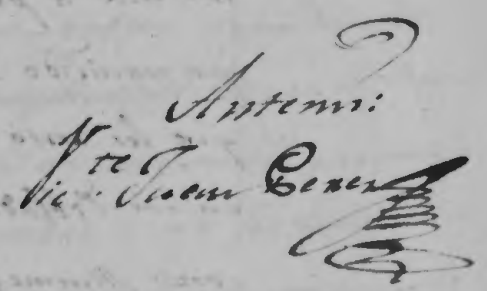 Antemi:
Vic.te Juan Gener